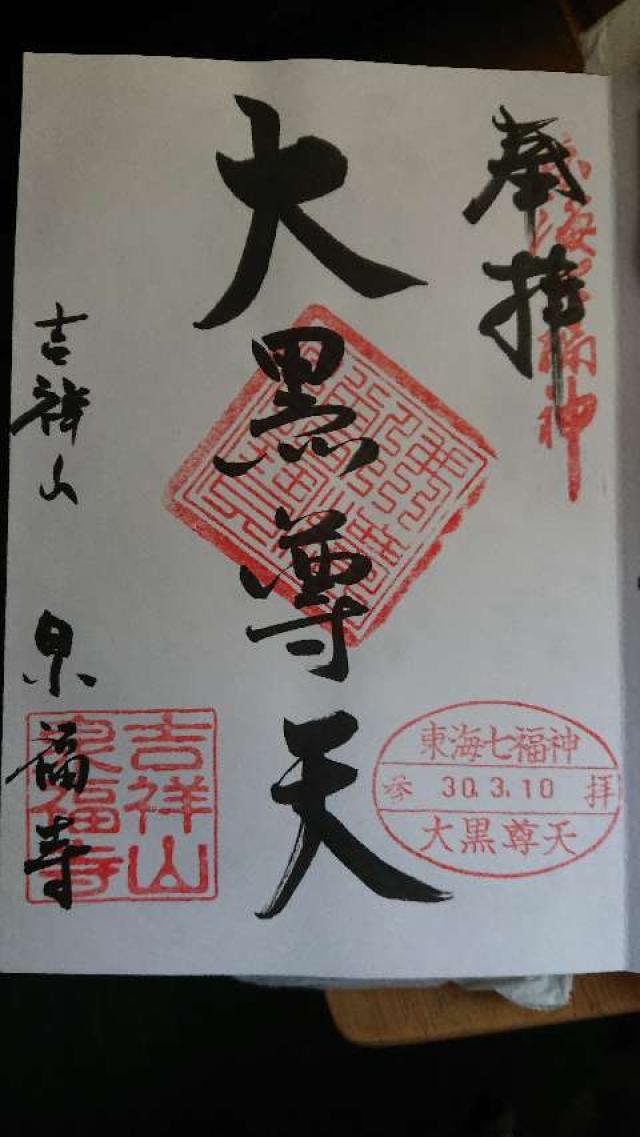 奉拝
東海七福神
大黒尊天
東海七福神
参 30.3.10 拝
大黒尊天
吉祥山
泉福寺
吉祥山
泉福寺